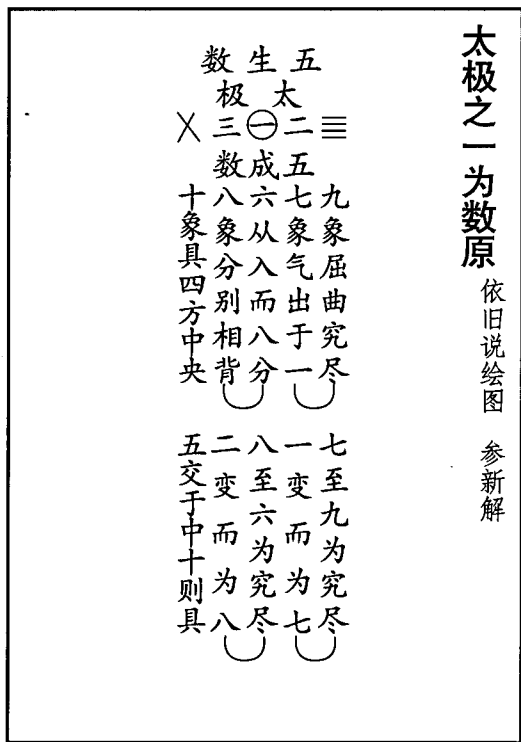 太极之一为数原
依旧说绘图　参新解
五生数
太极
亖二㊀三㐅
五成数
九象屈曲究尽
七象气出于一
六从入而八分
八象分别相背
十象具四方中央
七至九为究尽
一变而为七
八至六为究尽
二变而为八
五交于中十则具